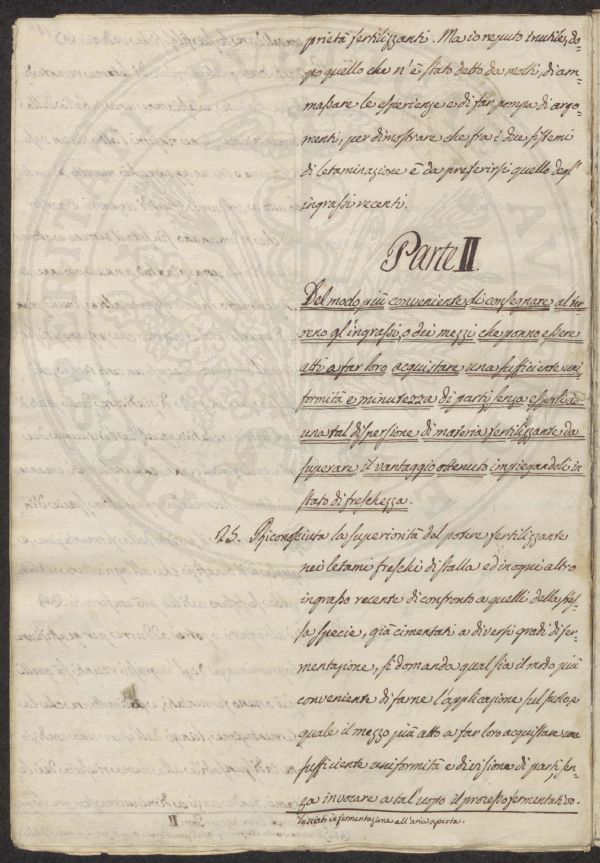 prietà fertilizzanti. Ma io reputo inutile, do=
po quello che n'è stato detto da molti, di am=
massare le esperienze e di far pompa di argo=
menti, per dimostrare che fra i due sistemi
di letaminazione è da preferirsi quello degl'
ingrassi recenti.
Parte II.
Del modo più conveniente di consegnare al ter=
reno gl'ingrassi, o dei mezzi che ponno essere
atti a far loro acquistare una sufficiente uni=
formità e minutezza di parti senza esservi
una tal dispersione di materia fertilizzante da
superare il vantaggio ottenuto impiegandoli in
stato di freschezza.
25. Riconosciuta la superiorità del potere fertilizzante
nei letami freschi di stalla ed in ogni altro
ingrasso recente di confronto a quelli della stes=
sa specie, già cimentati a diversi gradi di fer=
mentazione, si domanda qual sia il modo più
conveniente di farne l'applicazione sul suolo, e
quale il mezzo più atto a far loro acquistare una
sufficiente uniformità e divisione di parti sen=
za invocare a tal'uopo il processo fermentativo.
lasciati in fermentazione all'aria aperta.
II